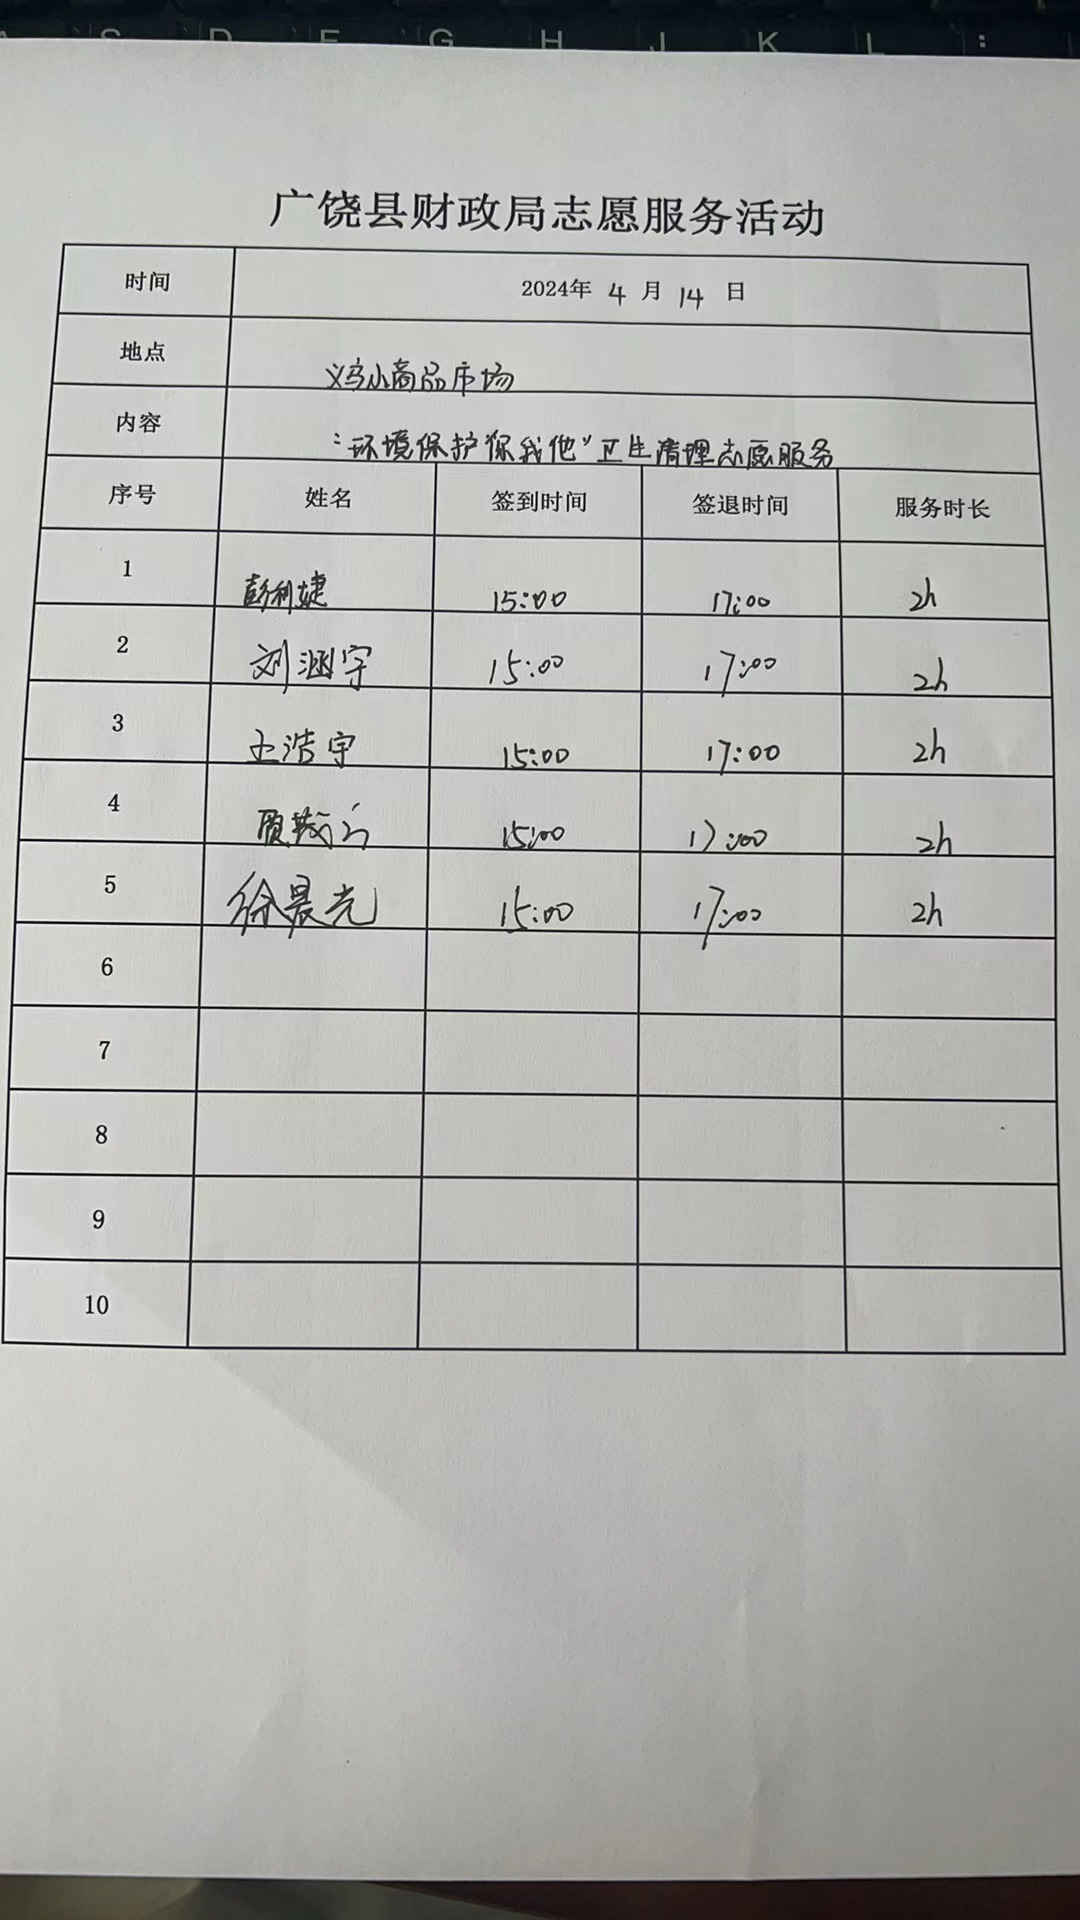 A S D F G H J K L :
广饶县财政局志愿服务活动
时间 2024年 4 月 14 日
地点 义乌小商品市场
内容 “环境保护你我他”卫生清理志愿服务
序号 姓名 签到时间 签退时间 服务时长
1 彭利婕 15:00 17:00 2h
2 刘涵宇 15:00 17:00 2h
3 王浩宇 15:00 17:00 2h
4 15:00 17:00 2h
5 徐晨光 15:00 17:00 2h
6
7
8
9
10